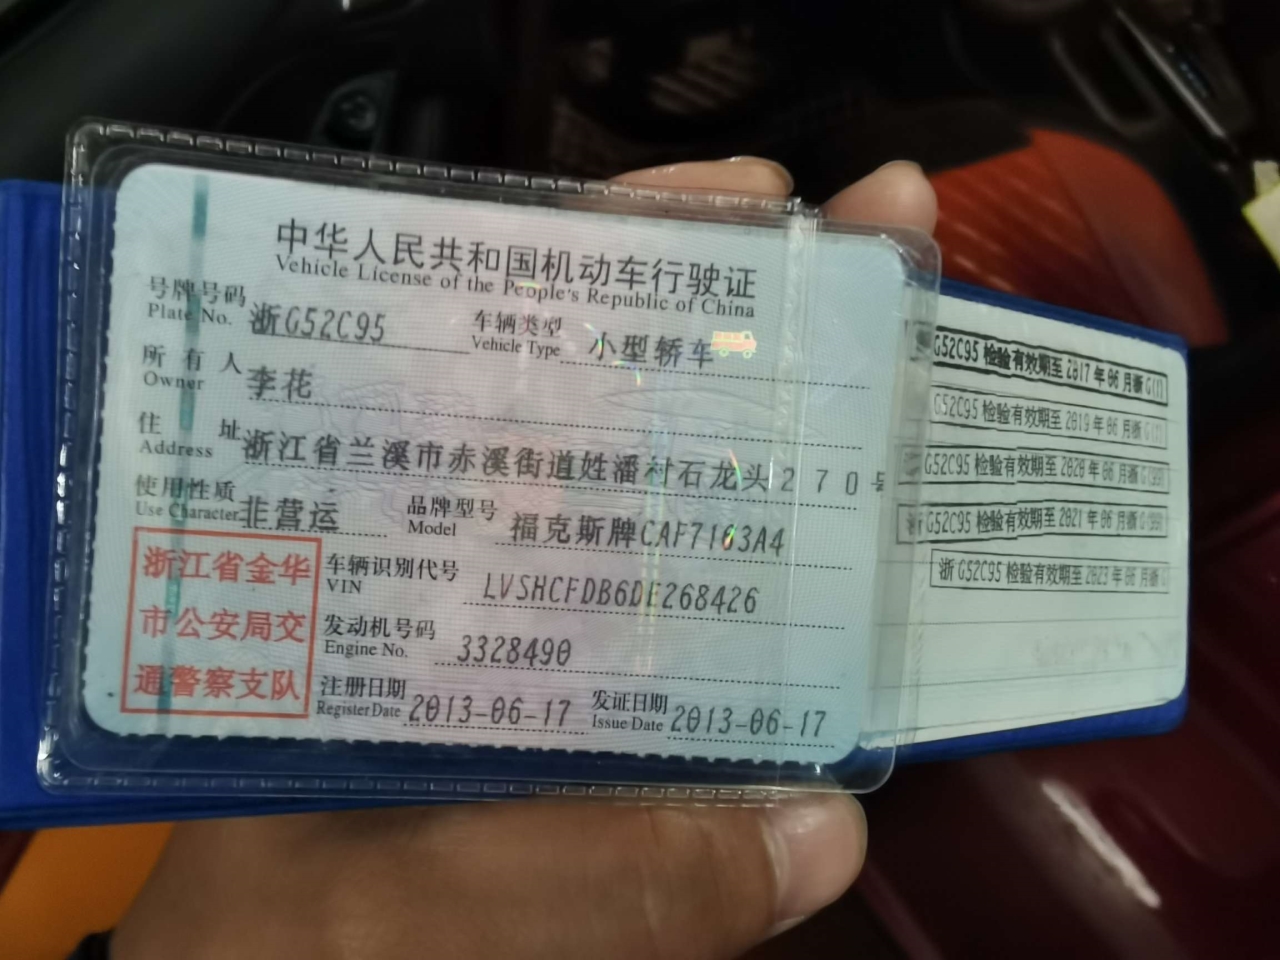 中华人民共和国机动车行驶证
Vehicle License of the People's Republic of China
号牌号码 浙G52C95 车辆类型 小型轿车
Plate No. Vehicle Type
所有人 李花
Owner
住址 浙江省兰溪市赤溪街道姓潘村石龙头270号
Address
使用性质 非营运 品牌型号 福克斯牌CAF7163A4
Use Character Model
浙江省金华
市公安局交
通警察支队
车辆识别代号 LVSHCFDB6DE268426
VIN
发动机号码 3328490
Engine No.
注册日期 2013-06-17 发证日期 2013-06-17
Register Date Issue Date
G52C95 检验有效期至 2017 年 06 月浙 G(1)
G52C95 检验有效期至 2019 年 06 月浙
G52C95 检验有效期至 2020 年 06 月浙 G(99)
浙 G52C95 检验有效期至 2021 年 06 月浙 G(99)
浙 G52C95 检验有效期至 2023 年 06 月浙 G